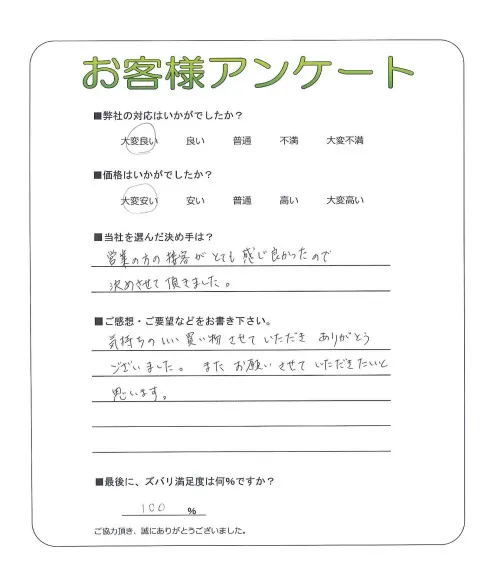 お客様アンケート
■弊社の対応はいかがでしたか？
大変良い 良い 普通 不満 大変不満
■価格はいかがでしたか？
大変安い 安い 普通 高い 大変高い
■当社を選んだ決め手は？
営業の方の接客がとても感じ良かったので
決めさせて頂きました。
■ご感想・ご要望などをお書き下さい。
気持ちのいい買い物させていただきありがとう
ございました。またお願いさせていただきたいと
思います。
■最後に、ズバリ満足度は何%ですか？
100 %
ご協力頂き、誠にありがとうございました。